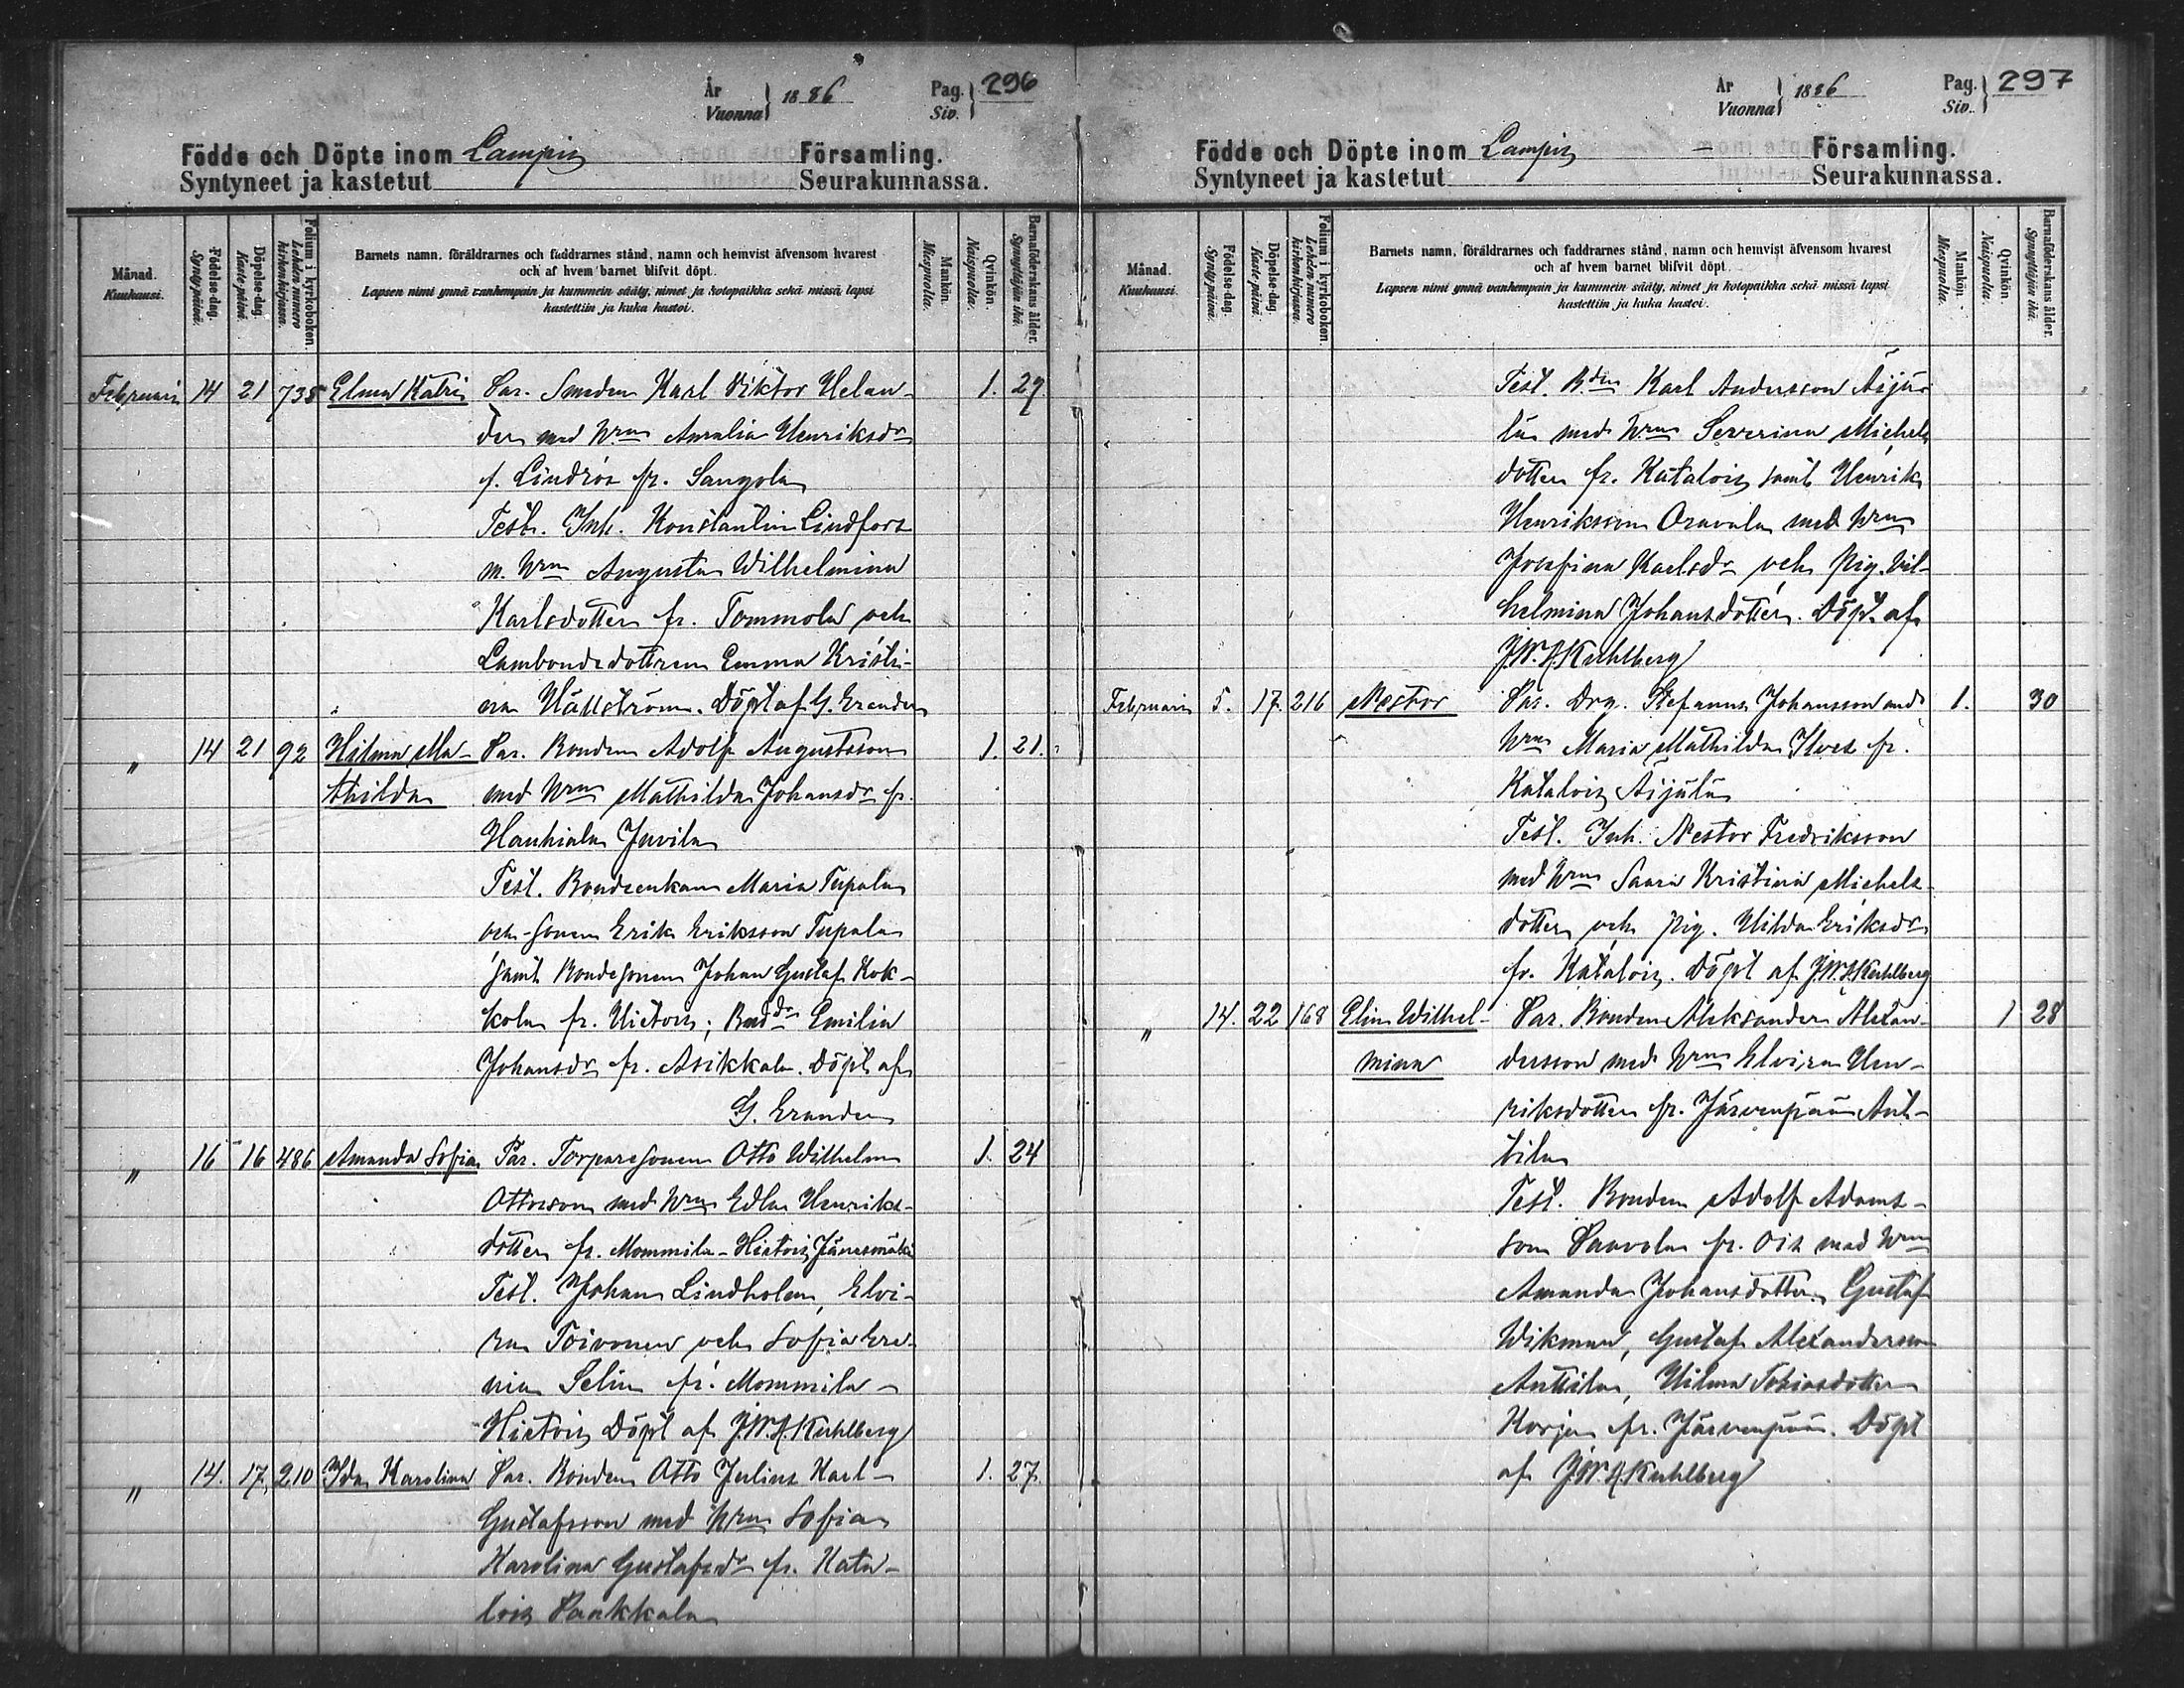 År
Vuonna } 1886
Pag.
Siv. } 296
Födde och Döpte inom Lampis Församling.
Syntyneet ja kastetut Seurakunnassa.
Månad. Kuukausi.
Födelse-dag. Synty päivä.
Döpelse-dag. Kaste päivä.
Folium i kyrkoboken. Lehden numero kirkonkirjassa.
Barnets namn, föräldrarnes och faddrarnes stånd, namn och hemvist äfvensom hvarest
och af hvem barnet blifvit döpt.
Lapsen nimi ynnä vanhempain ja kummein sääty, nimet ja kotopaikka sekä missä lapsi
kastettiin ja kuka kastoi.
Mankön. Miespuolta.
Qvinkön. Naispuolta.
Barnaföderskans ålder. Synnyttäjän ikä.
Februari 14 21 738 Elma Katri Par. Smeden Karl Viktor Helan- 1. 29
der med hrun Amalia Henriksdr
f. Lindros fr. Sangola
Test. Inh. Konstantin Lindfors
m. hrun Augusta Wilhelmina
Karlsdotter fr. Tommola och
Lambondedottren Emma Kristi-
na Hällström. Döpt af G. Erander
" 14 21 92 Hilma Ma- Par. Bonden Adolf Augustsson 1. 21.
thilda med hrun Mathilda Johansdr fr.
Hauhiala Juvila
Test. Bondeenkan Maria Tupala
och sonen Erik Eriksson Tupala
samt Bondesonen Johan Gustaf Kok-
kola fr. Hietois; Bondedr Emilia
Johansdr fr. Asikkala. Döpt af
G. Erander
" 16 16 486 Amanda Sofia Par. Torparesonen Otto Wilhelm 1. 24
Ottosson med hrun Edla Henriks-
dotter fr. Mommila-Hietois Jänesmäki
Test. Johan Lindholm, Elvi-
ra Toivonen och Sofia Ere-
nia Selin fr. Mommila-
Hietois Döpt af J.W.A. Kuhlberg
" 14. 17. 210 Ida Karolina Par. Bonden Otto Julius Karl- 1. 27.
Gustafsson med hrun Sofia
Karolina Gustafsdr fr. Kata-
lois Paakkala
År
Vuonna } 1886
Pag.
Siv. } 297
Födde och Döpte inom Lampis Församling.
Syntyneet ja kastetut Seurakunnassa.
Månad. Kuukausi.
Födelse-dag. Synty päivä.
Döpelse-dag. Kaste päivä.
Folium i kyrkoboken. Lehden numero kirkonkirjassa.
Barnets namn, föräldrarnes och faddrarnes stånd, namn och hemvist äfvensom hvarest
och af hvem barnet blifvit döpt.
Lapsen nimi ynnä vanhempain ja kummein sääty, nimet ja kotopaikka sekä missä lapsi
kastettiin ja kuka kastoi.
Mankön. Miespuolta.
Qvinkön. Naispuolta.
Barnaföderskans ålder. Synnyttäjän ikä.
Test. Bden Karl Andersson Äijä-
lä med hrun Severina Michels
dotter fr. Katalois samt Henrik
Henriksson Oravala med hrun
Josefina Karlsdr och pig. Vil-
helmina Johansdotter. Döpt af
J.W.A. Kuhlberg
Februari 5. 17. 216 Nestor Par. Drg. Stefanus Johansson med 1. 30
hrun Maria Mathilda Ilves fr.
Katalois Äijälä
Test. Inh. Nestor Fredriksson
med hrun Saara Kristina Michels-
dotter och pig. Hilda Eriksdr
fr. Katalois. Döpt af J.W.A. Kuhlberg
" 14. 22 168 Elin Wilhel- Par. Bonden Aleksander Alexan- 1 28
mina dersson med hrun Elvira Hen-
riksdotter fr. Järvenpää Ant-
tila
Test. Bonden Adolf Adams-
son Paavola fr. Ois med hrun
Amanda Johansdotter, Gustaf
Wikman, Gustaf Alexandersson
Anttila, Hilma Tobiasdotter
Korja fr. Järvenpää. Döpt
af J.W.A. Kuhlberg